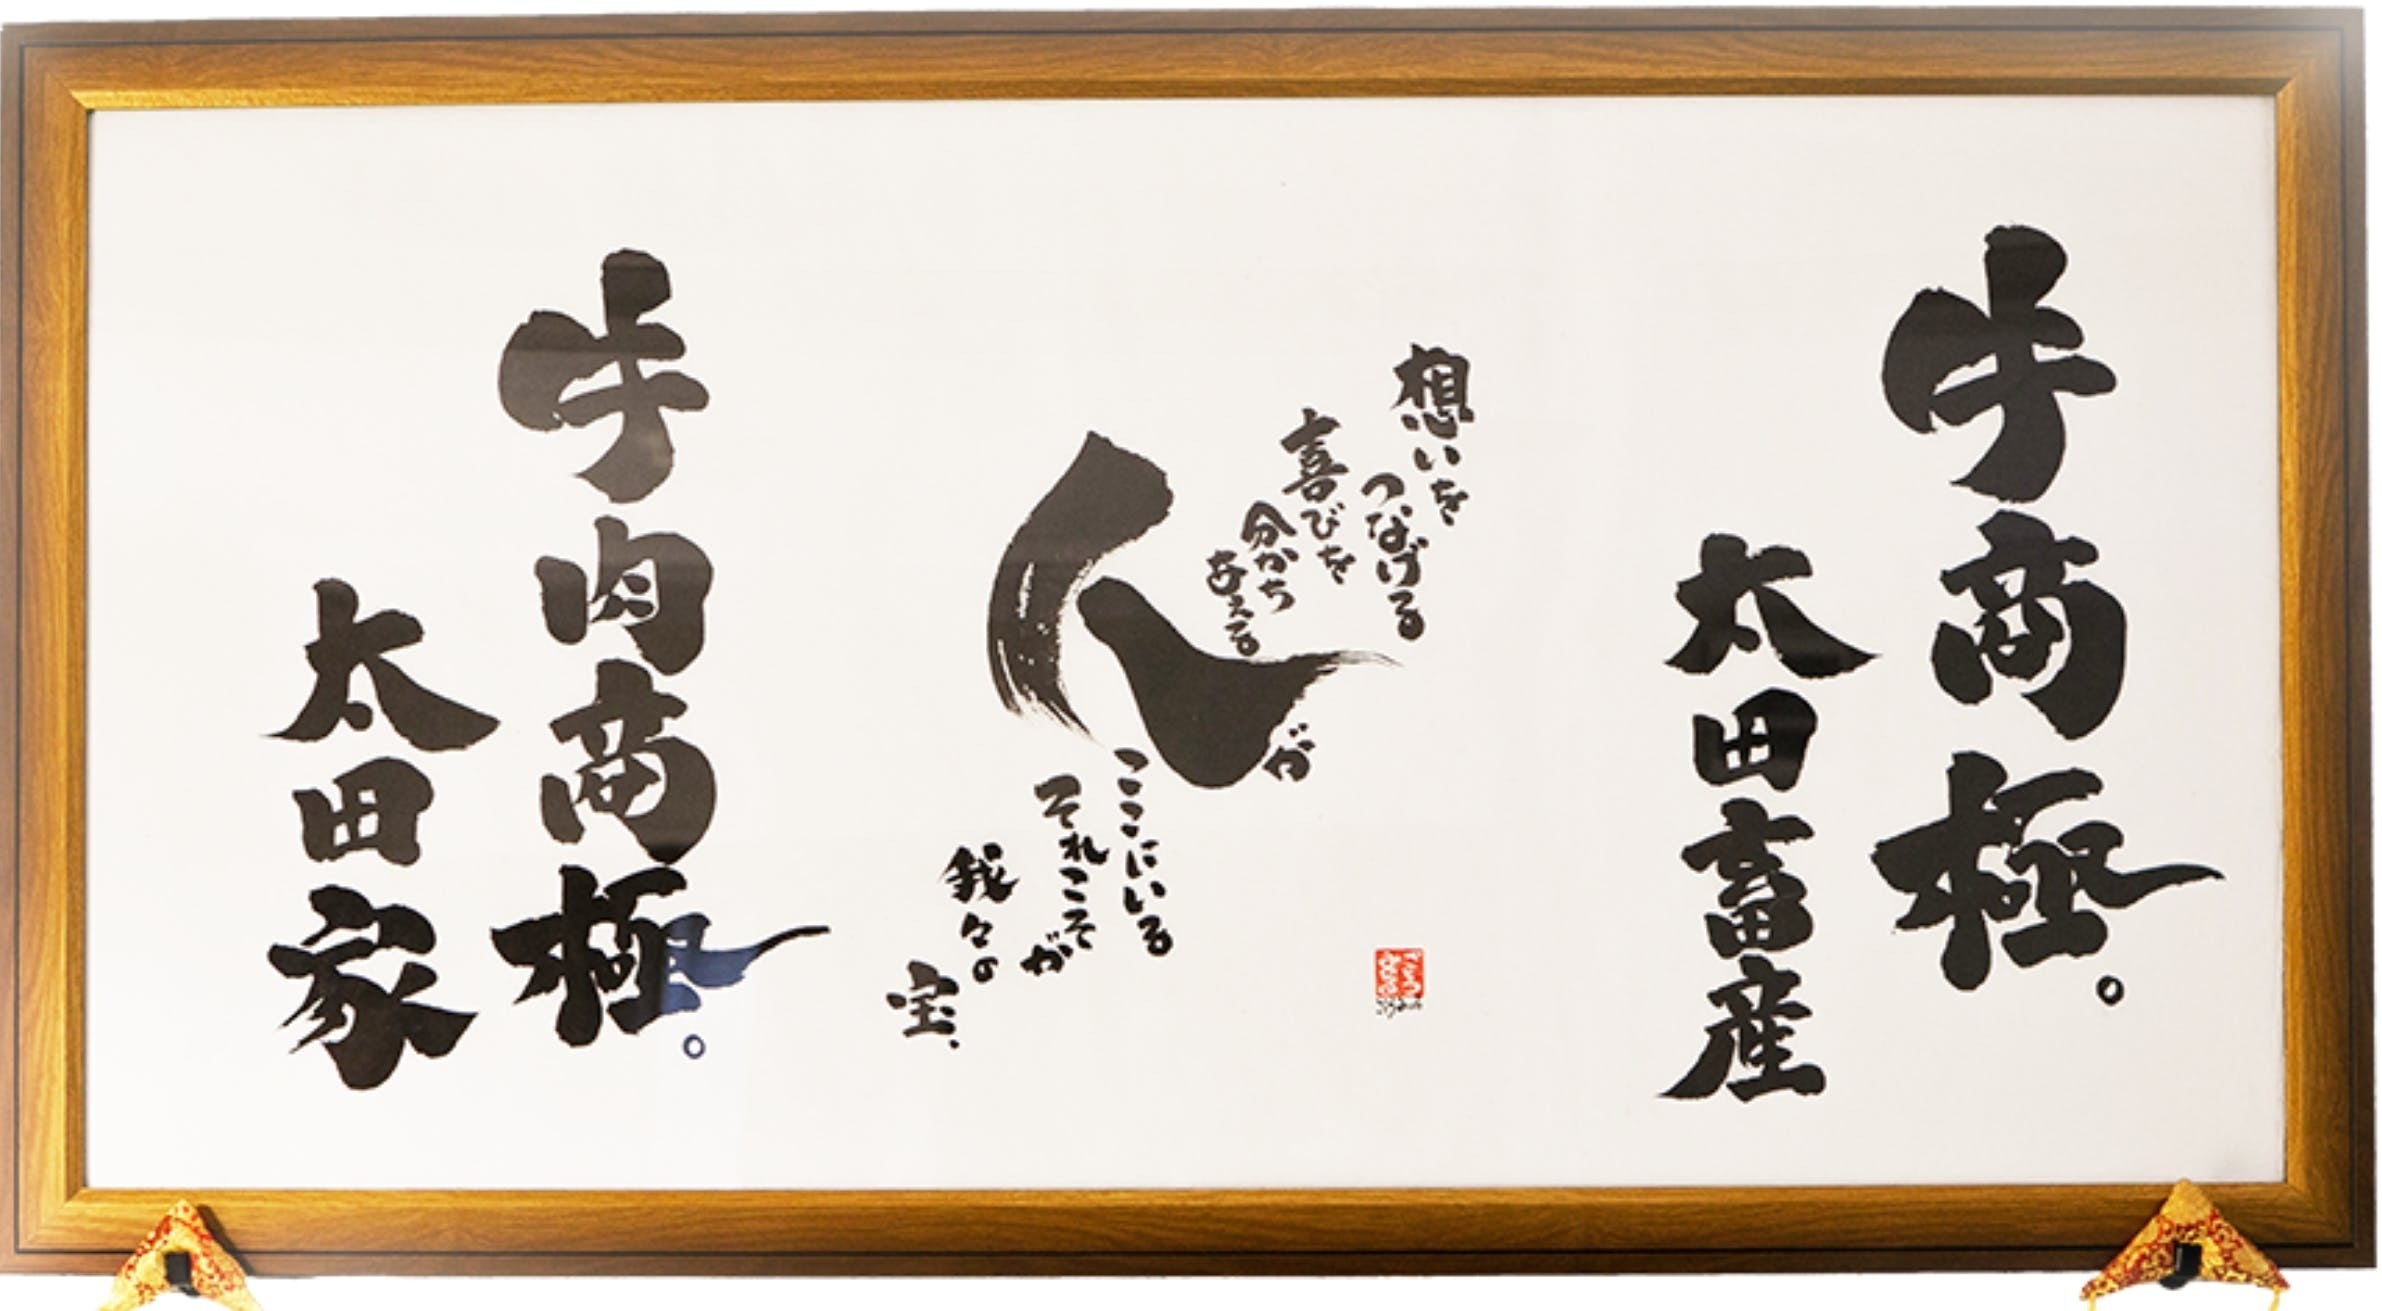 牛商極。
太田畜産
想いを
つなげる
喜びを
分かち
あえる
人
が
ここにいる
それこそ
が
我々の
宝、
牛肉商極。
太田家